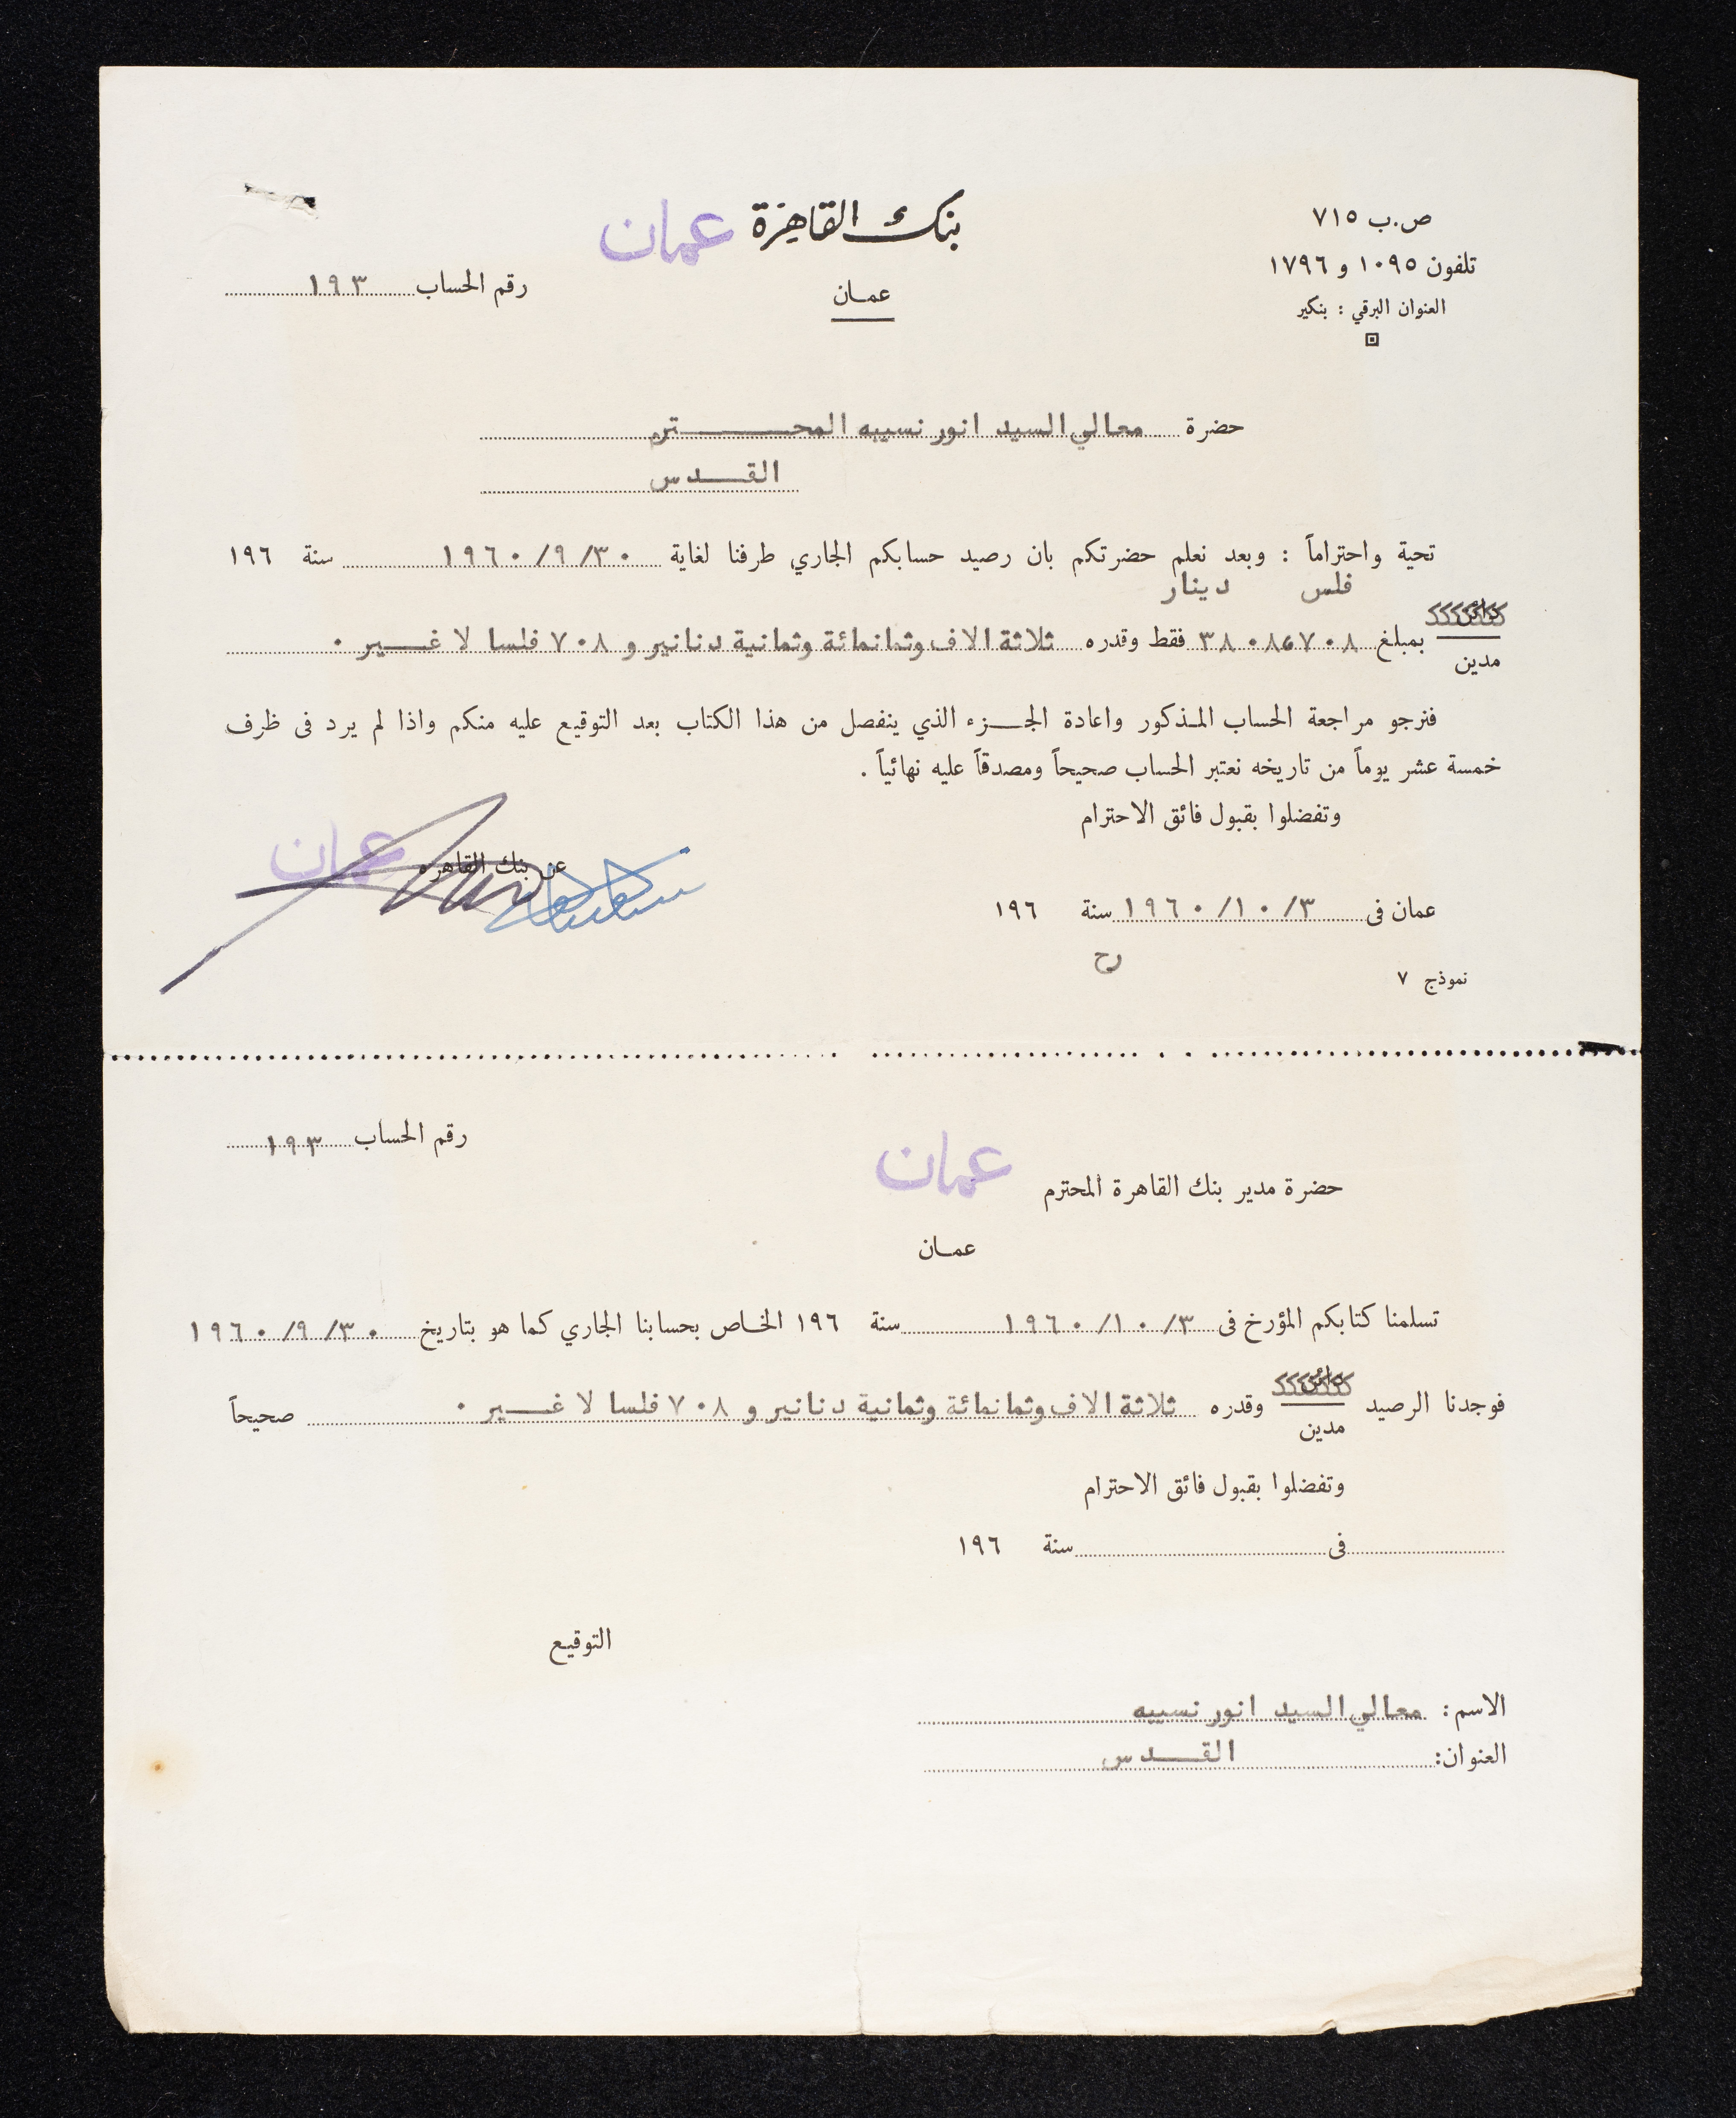 ص.ب ٧١٥
تلفون ١٠٩٥ و ١٧٩٦
العنوان البرقي : بنكير
بنك القاهرة عمان
عمان
رقم الحساب ١٩٣
حضرة معالي السيد انور نسيبه المحترم
القدس
تحية واحتراماً : وبعد نعلم حضرتكم بان رصيد حسابكم الجاري طرفنا لغاية ١٩٦٠/٩/٣٠ سنة ١٩٦
فلس دينار
دائن
مدين
بمبلغ ٣٨٠٨٫٧٠٨ فقط وقدره ثلاثة الاف وثمانمائة وثمانية دنانير و ٧٠٨ فلسا لا غير ٠
فنرجو مراجعة الحساب المذكور واعادة الجزء الذي ينفصل من هذا الكتاب بعد التوقيع عليه منكم واذا لم يرد فى ظرف
خمسة عشر يوماً من تاريخه نعتبر الحساب صحيحاً ومصدقاً عليه نهائياً .
وتفضلوا بقبول فائق الاحترام
عن بنك القاهره عمان
عمان فى ١٩٦٠/١٠/٣ سنة ١٩٦
نموذج ٧
رقم الحساب ١٩٣
حضرة مدير بنك القاهرة المحترم عمان
عمان
تسلمنا كتابكم المؤرخ فى ١٩٦٠/١٠/٣ سنة ١٩٦ الخاص بحسابنا الجاري كما هو بتاريخ ١٩٦٠/٩/٣٠
فوجدنا الرصيد دائن
مدين
وقدره ثلاثة الاف وثمانمائة وثمانية دنانير و ٧٠٨ فلسا لا غير ٠ صحيحاً
وتفضلوا بقبول فائق الاحترام
فى سنة ١٩٦
التوقيع
الاسم : معالي السيد انور نسيبه
العنوان : القدس